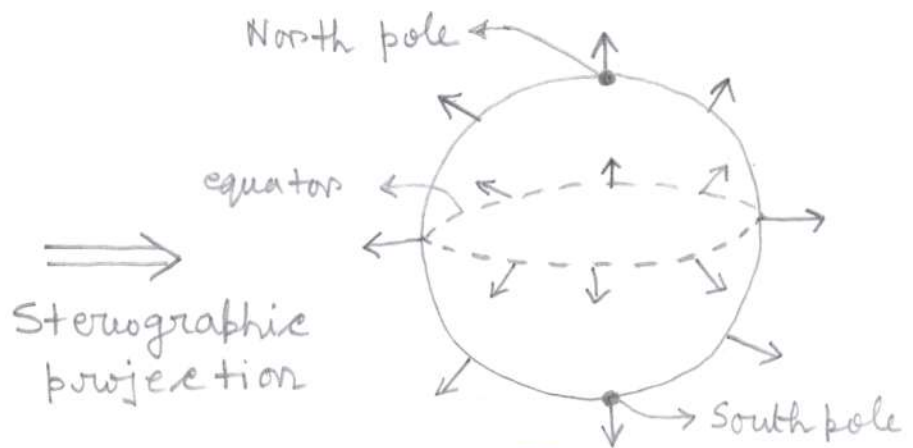 North pole
equator
Stereographic
projection
South pole